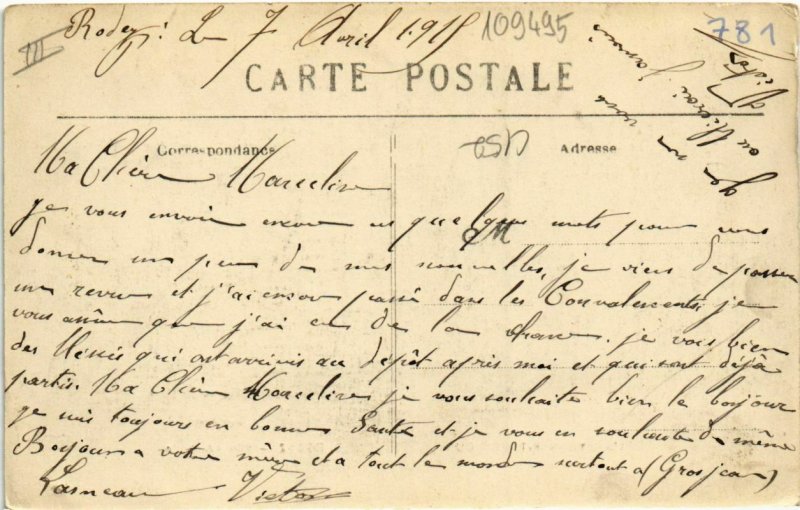 III Rodez: Le 7 Avril 1915 109495 781
CARTE POSTALE
Correspondance Adresse
Ma Chère Marceline
je vous envoie encore ces quelques mots pour vous
donner un peu de mes nouvelles, je viens de passer
une revue et j'ai encore passé dans les Convalescents je
vous assure que j'ai eu de la chance. je vois bien
des blessés qui ont arrivés au dépôt après moi et qui sont déjà
partis. Ma Chère Marceline je vous souhaite bien le bonjour
je suis toujours en bonne Santé et je vous en souhaite de même
Bonjour a votre mère et a tout le monde surtout a (Grosjean)
Lasneau Victor